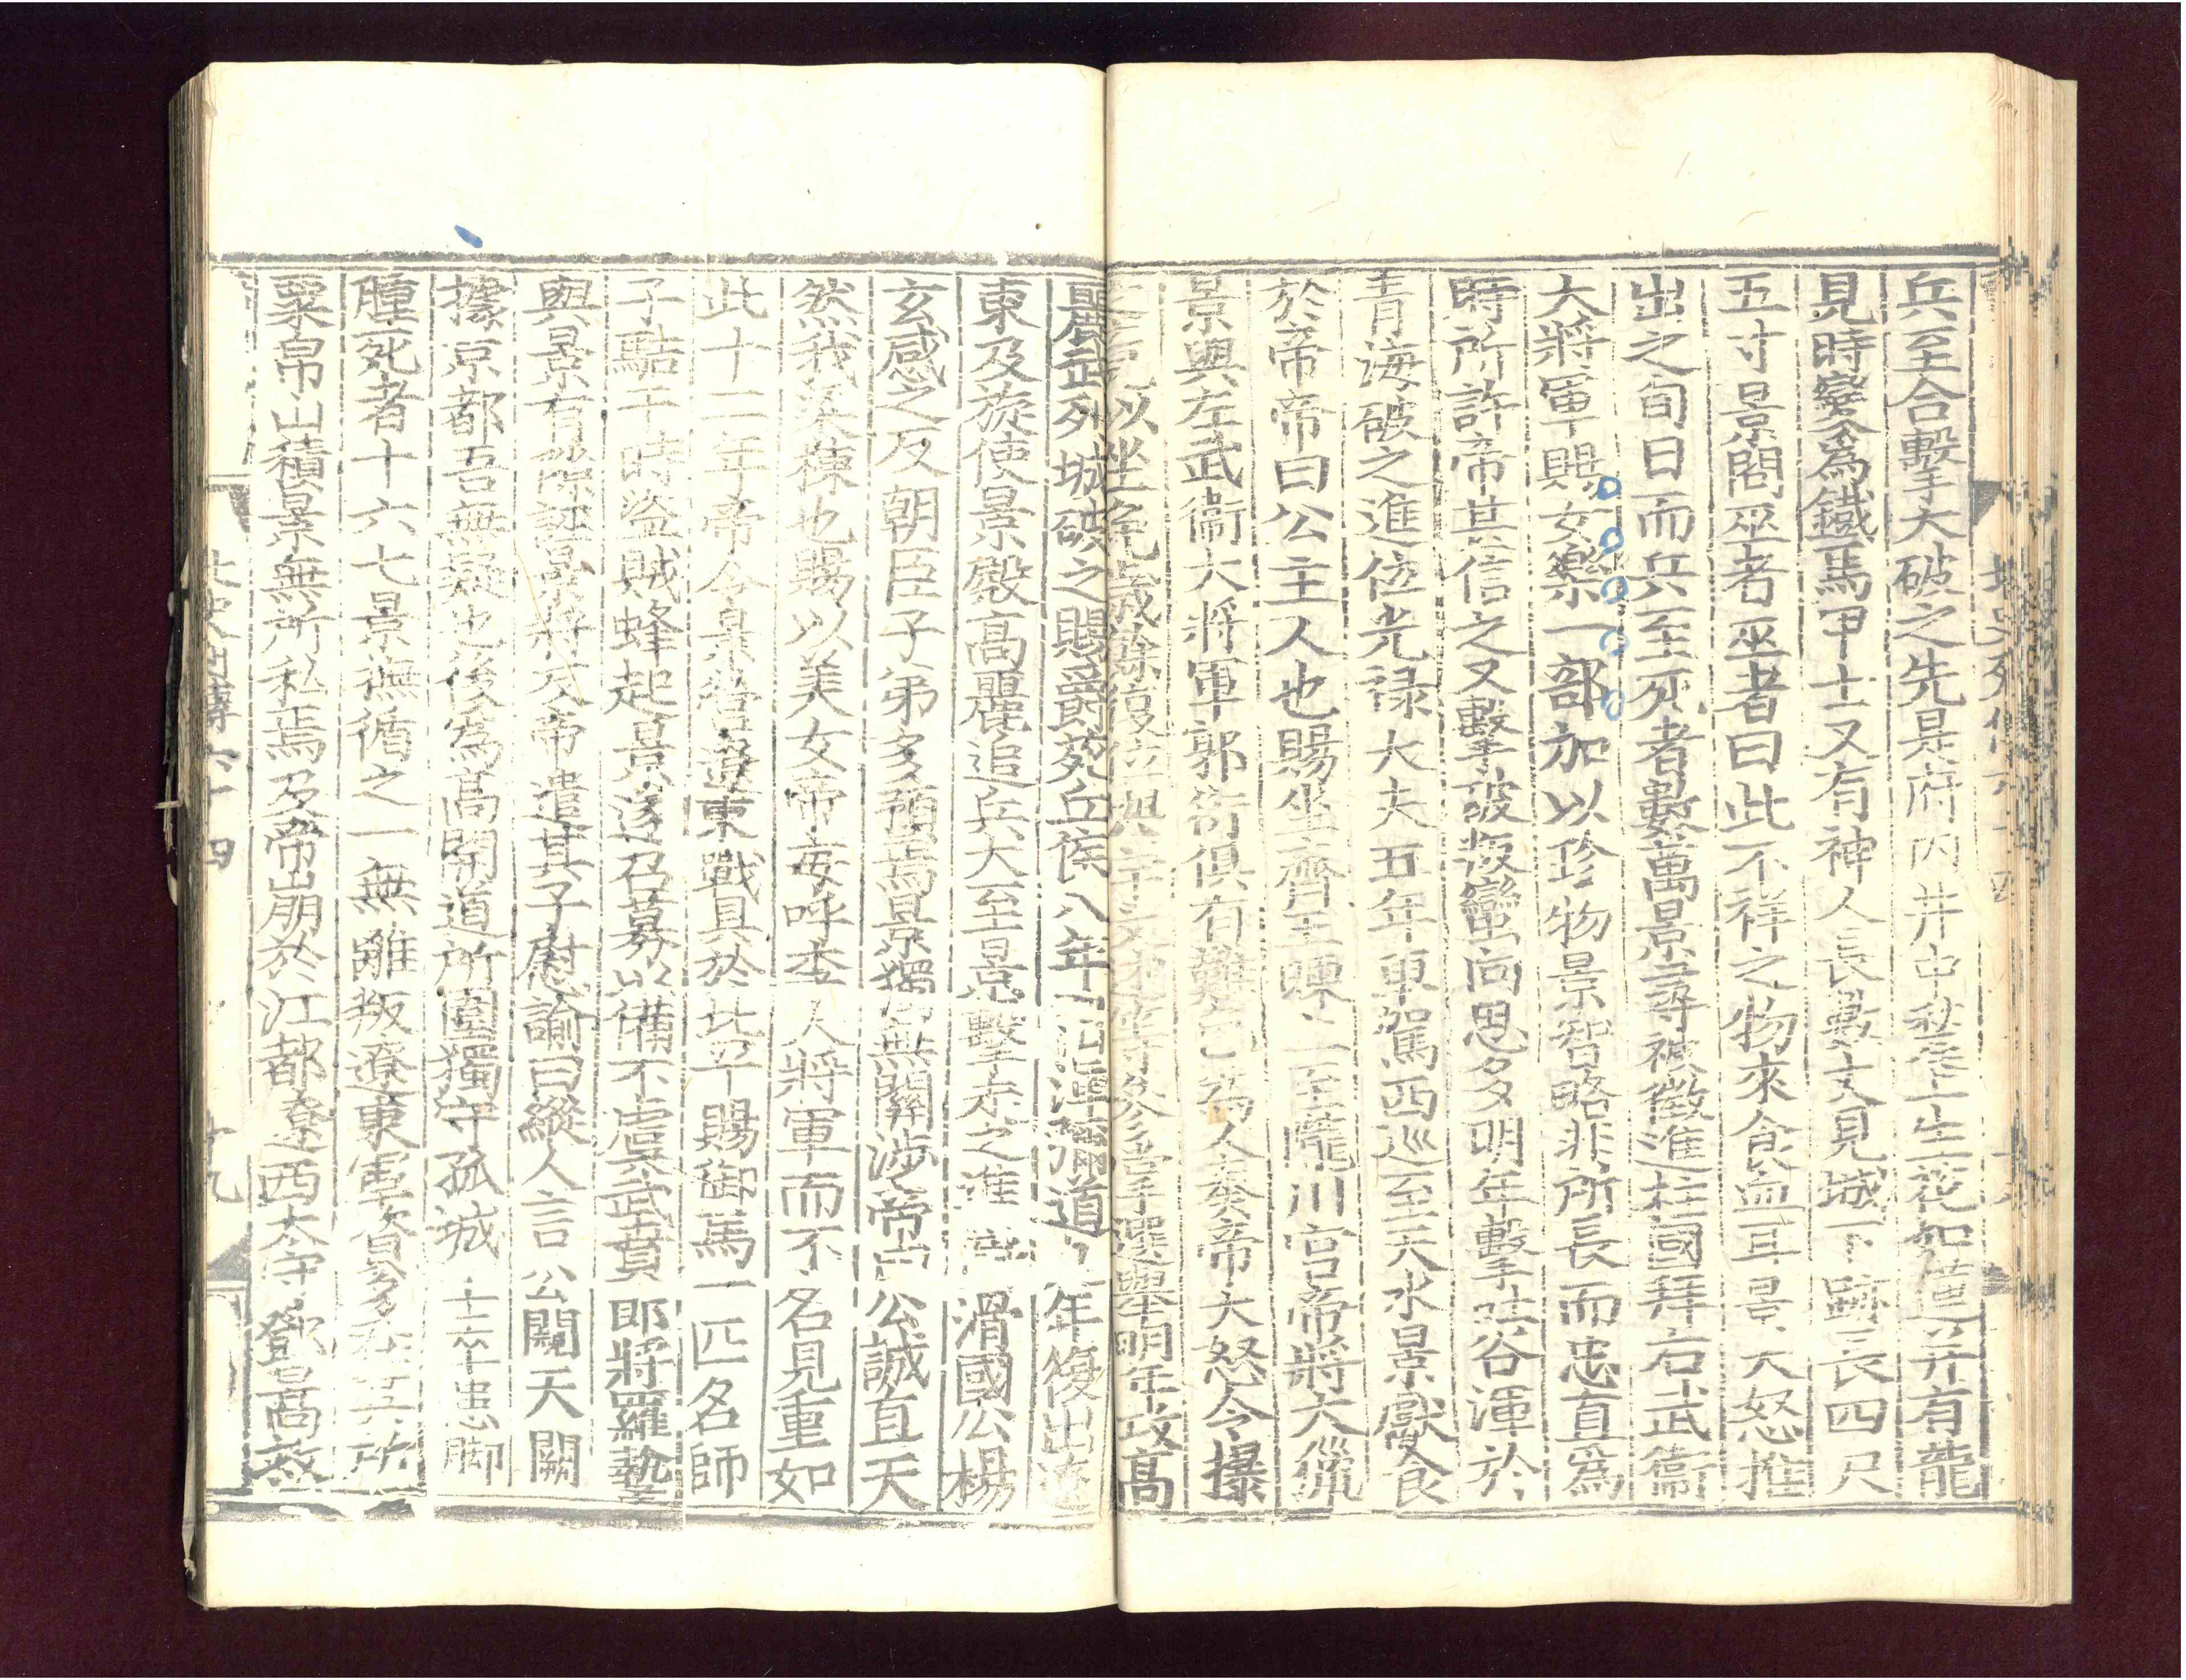 兵至合擊大破之先是府内井中甃上生花如蓮并有龍
見時變爲鐵馬甲士又有神人長數丈見城下跡長四尺
五寸景問巫者巫者曰此不祥之物來食人血耳景大怒推
出之旬日而兵至死者數萬景尋被徵進柱國拜右武衞
大將軍賜女樂一部加以珍物景智略非所長而忠直爲
時所許帝甚信之又擊破叛蠻向思多明年擊吐谷渾於
青海破之進位光禄大夫五年車駕西巡至天水景獻食
於帝帝曰公主人也賜坐齊王暕上至隴川宮帝將大獵
景與左武衞大將軍郭衍俱有難言爲人奏帝大怒令攥
以坐免歲餘復位與宇文述等參掌選舉明年攻高
麗武列城破之賜爵苑丘侯八年出渾彌道九年復出遼
東及旋使景殿高麗追兵大至景擊走之進 滑國公楊
玄感之反朝臣子弟多預焉景獨無關涉帝曰公誠直天
然我梁棟也賜以美女帝每呼李大將軍而不名見重如
此十二年帝令景營遼東戰具於北平賜御馬一匹名師
子䮘于時盜賊蜂起景遂召募以備不虞武賁郎將羅藝
與景有隙誣景將反帝遣其子慰諭曰縱人言公闚天闕
據京都吾無疑也後爲高開道所圍獨守孤城士卒患脚
腫死者十六七景撫循之一無離叛遼東軍資多在其所
粟帛山積景無所私焉及帝崩於江都遼西太守鄧暠救
北史列傳六十四 十九